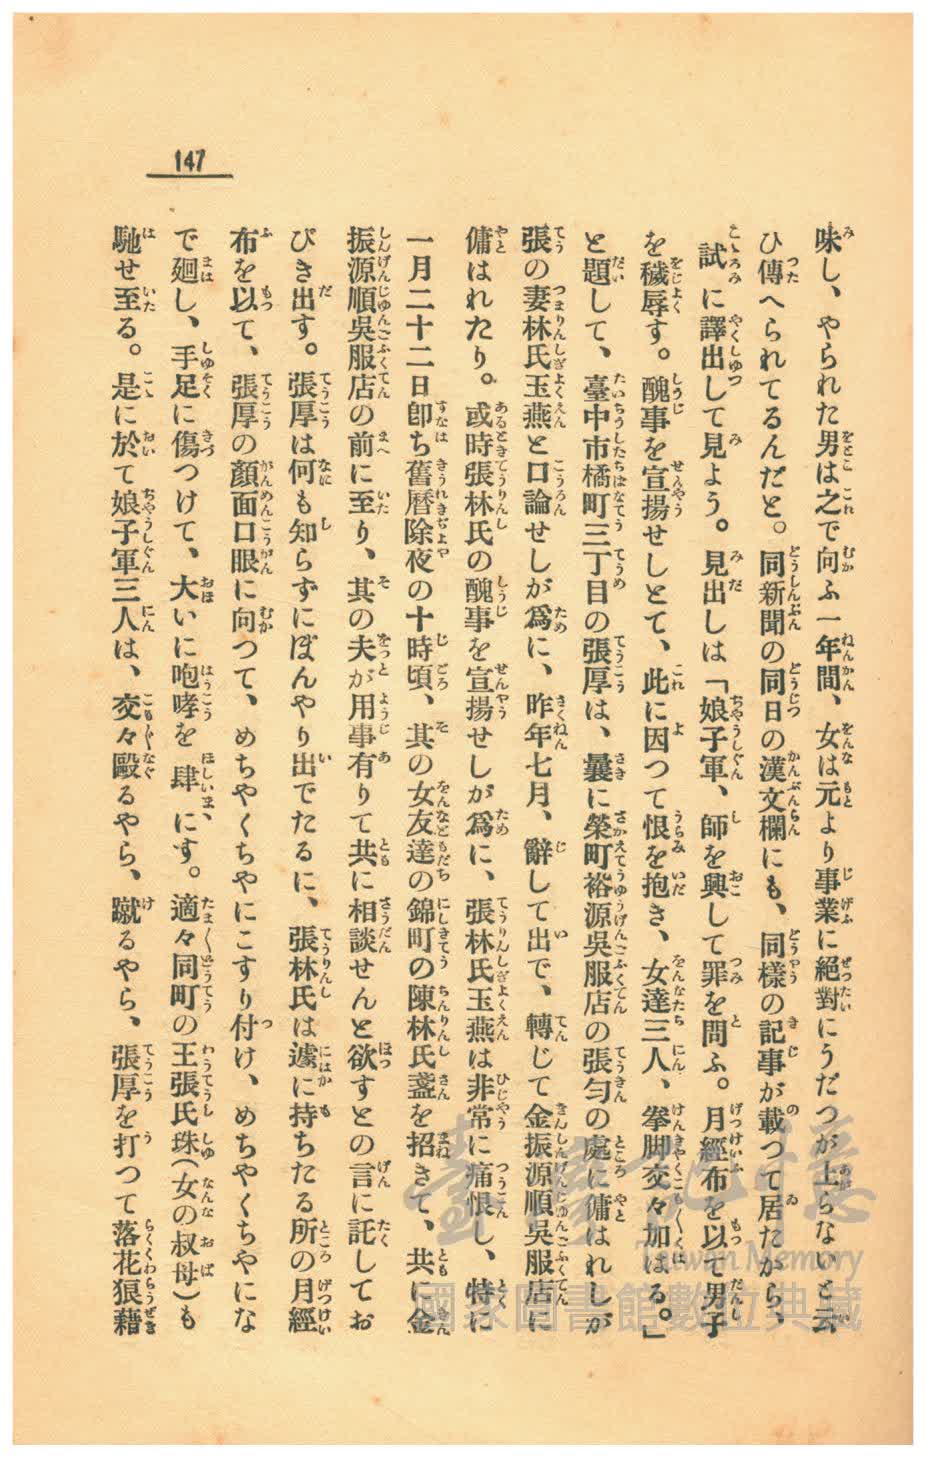 147
味し、やられた男は之で向ふ一年間、女は元より事業に絕對にうだつが上らないと云
ひ傳へられてるんだと。同新聞の同日の漢文欄にも、同樣の記事が載つて居たから、
試に譯出して見よう。見出しは「娘子軍、師を興して罪を問ふ。月經布を以て男子
を穢辱す。醜事を宣揚せしとて、此に因つて恨を抱き、女達三人、拳脚交々加はる。」
と題して、臺中市橘町三丁目の張厚は、曩に榮町裕源吳服店の張勻の處に傭はれしが
張の妻林氏玉燕と口論せしが爲に、昨年七月、辭して出で、轉じて金振源順吳服店に
傭はれたり。或時張林氏の醜事を宣揚せしが爲に、張林氏玉燕は非常に痛恨し、特に
一月二十二日卽ち舊曆除夜の十時頃、其の女友達の錦町の陳林氏盞を招きて、共に金
振源順吳服店の前に至り、其の夫が用事有りて共に相談せんと欲すとの言に託してお
びき出す。張厚は何も知らずにぼんやり出でたるに、張林氏は遽に持ちたる所の月經
布を以て、張厚の顏面口眼に向つて、めちやくちやにこすり付け、めちやくちやにな
で廻し、手足に傷つけて、大いに咆哮を肆にす。適々同町の王張氏珠(女の叔母)も
馳せ至る。是に於て娘子軍三人は、交々毆るやら、蹴るやら、張厚を打つて落花狼藉
臺灣記憶
Taiwan Memory
國家圖書館數位典藏